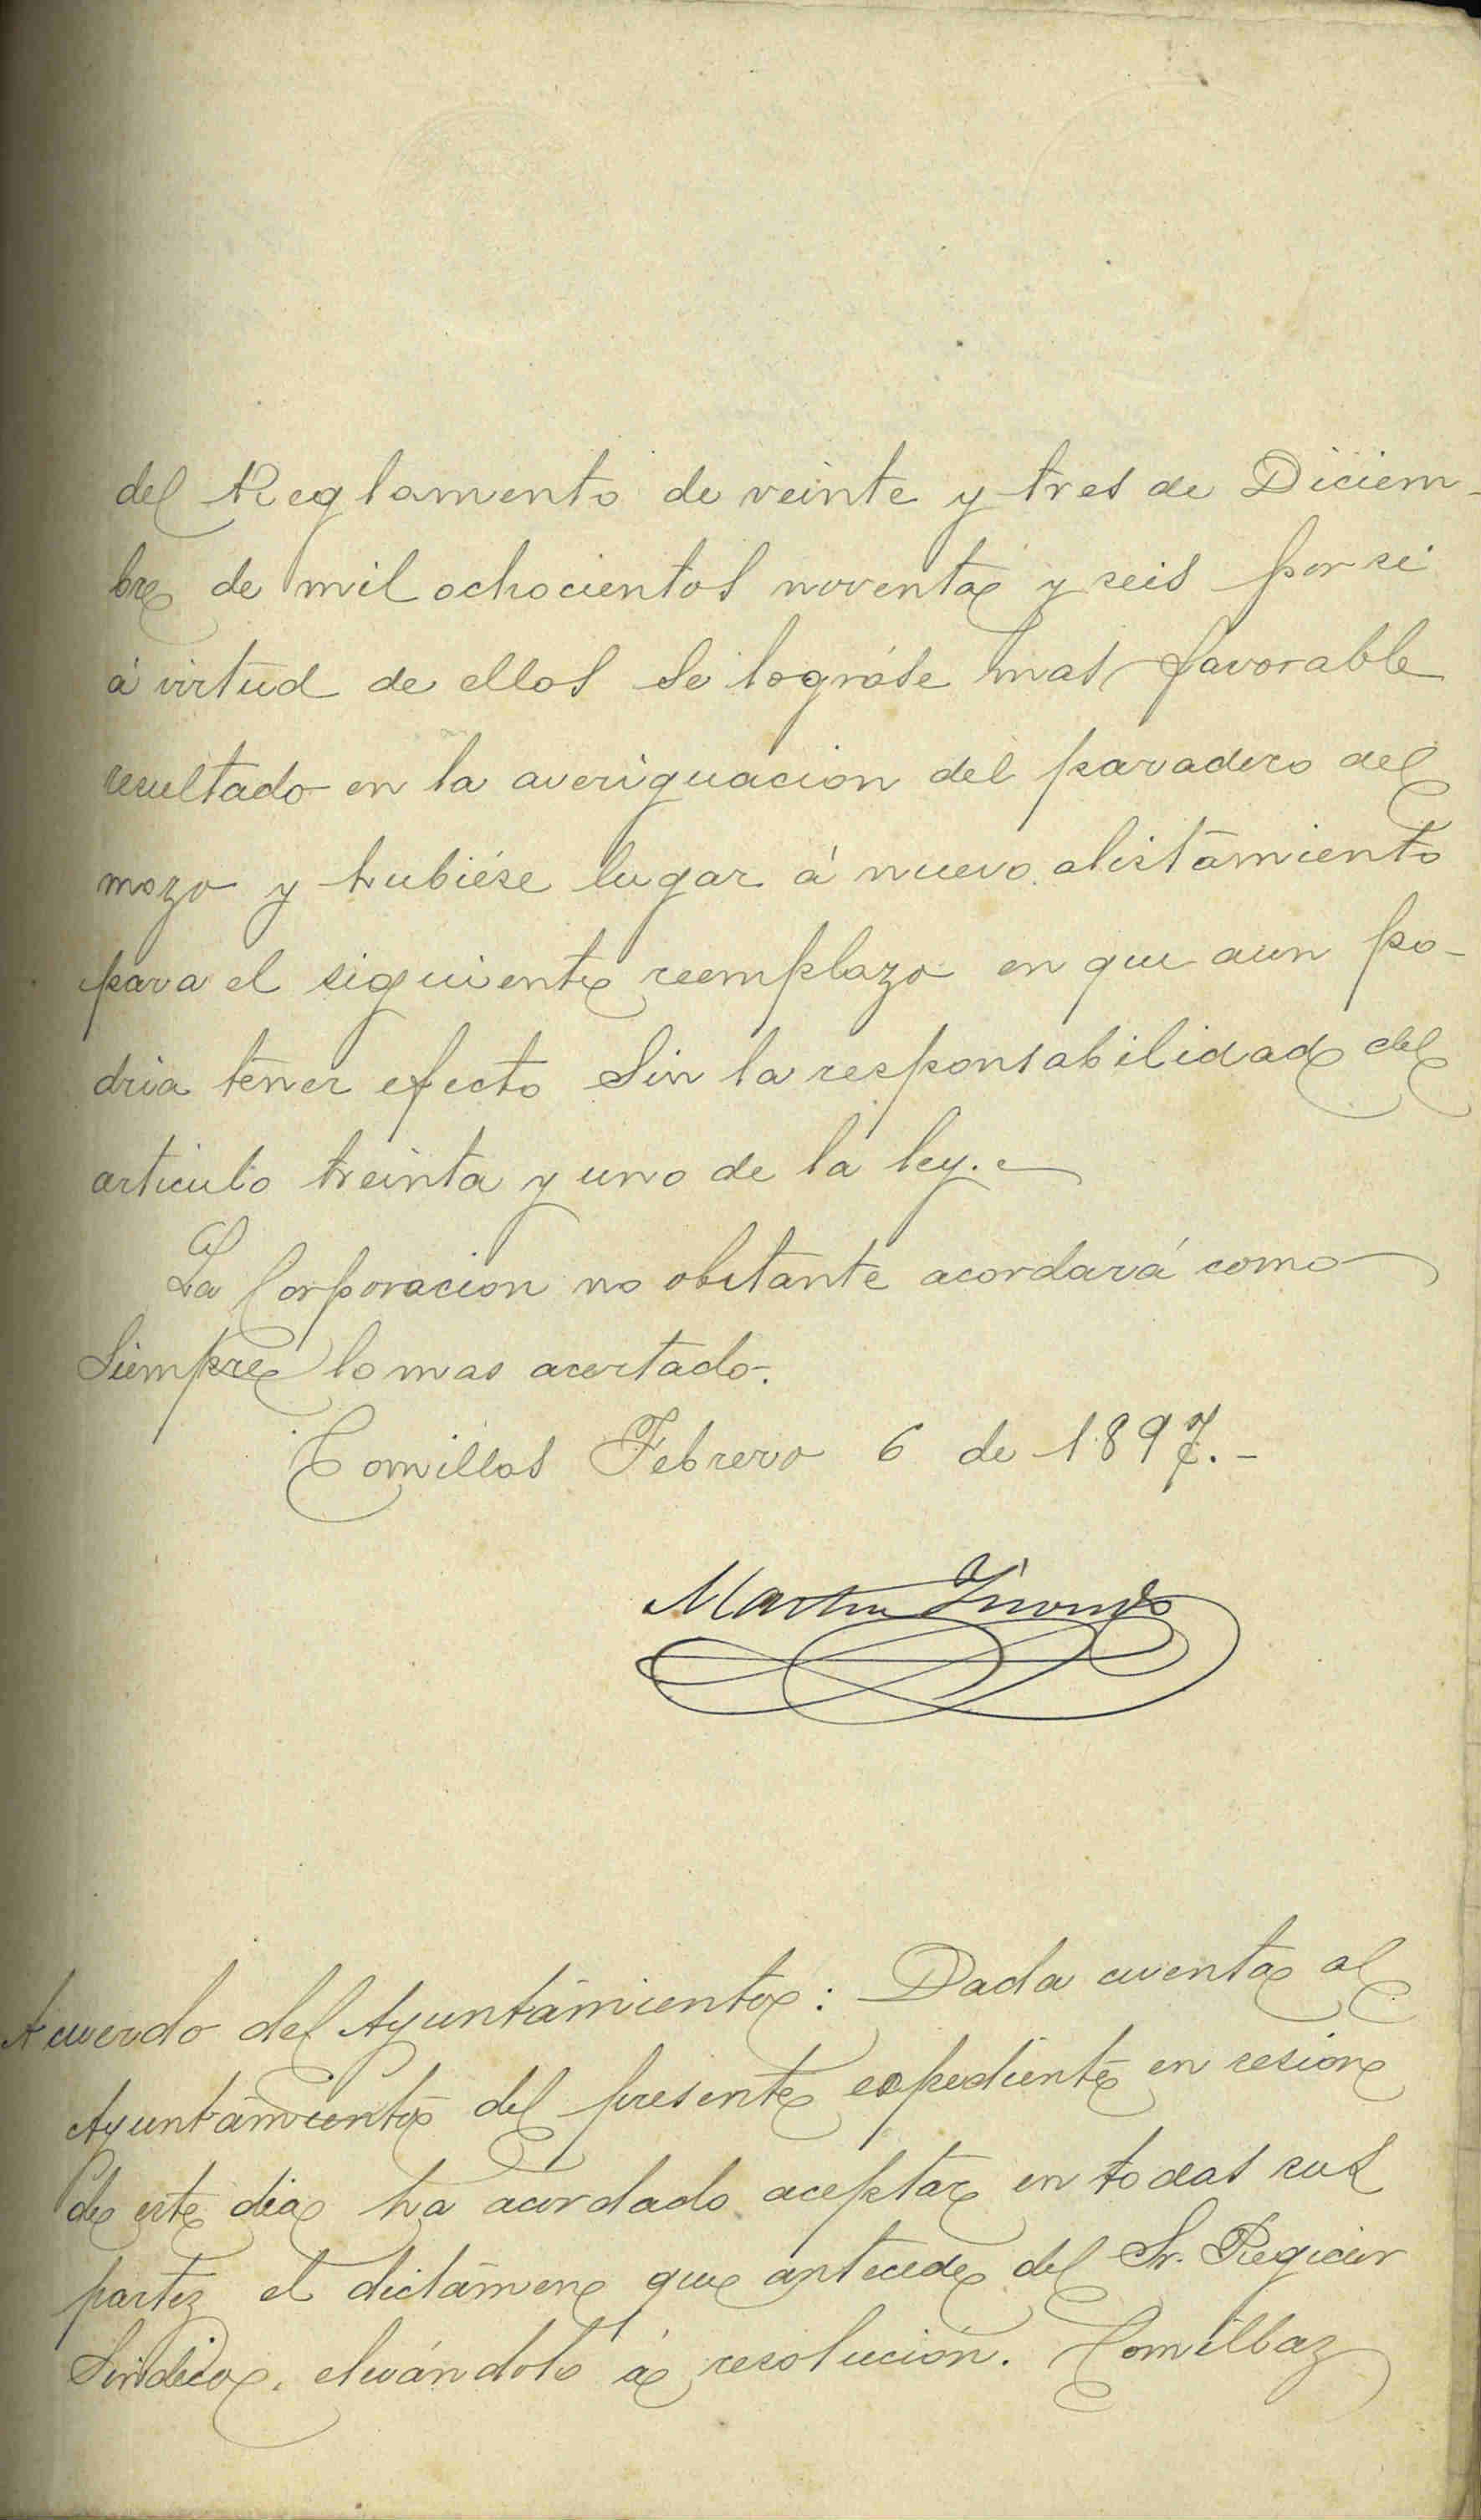 del Reglamento de veinte y tres de Diciem-
bre de mil ochocientos noventa y seis por si
á virtud de ellos se lográse mas favorable
resultado en la averiguacion del paradero del
mozo y hubiése lugar á nuevo alistamiento
para el siguiente reemplazo en que aun po-
dria tener efecto sin la responsabilidad del
articulo treinta y uno de la ley.
La Corporacion no obstante acordará como
siempre lo mas acertado.
Comillas Febrero 6 de 1897.-
Martin
Acuerdo del Ayuntamiento: Dada cuenta al
Ayuntamiento del presente expediente en sesión
de este dia ha acordado aceptar en todas sus
partes el dictámen que antecede del Sr. Regidor
Sindico, elevándolo á resolución. Comillas